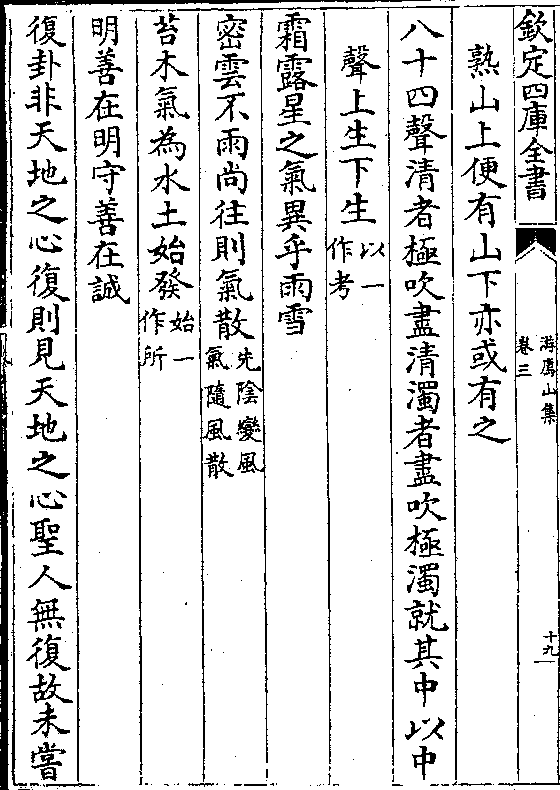 欽定四庫全書
游廌山集
卷三
十九
熟山上便有山下亦或有之
八十四聲清者極吹盡清濁者盡吹極濁就其中以中
聲上生下生以一作考
霜露星之氣異乎雨雪
密雲不雨尚往則氣散先陰變風氣隨風散
苔木氣為水土始發始一作所
明善在明守善在誠
復卦非天地之心復則見天地之心聖人無復故未嘗